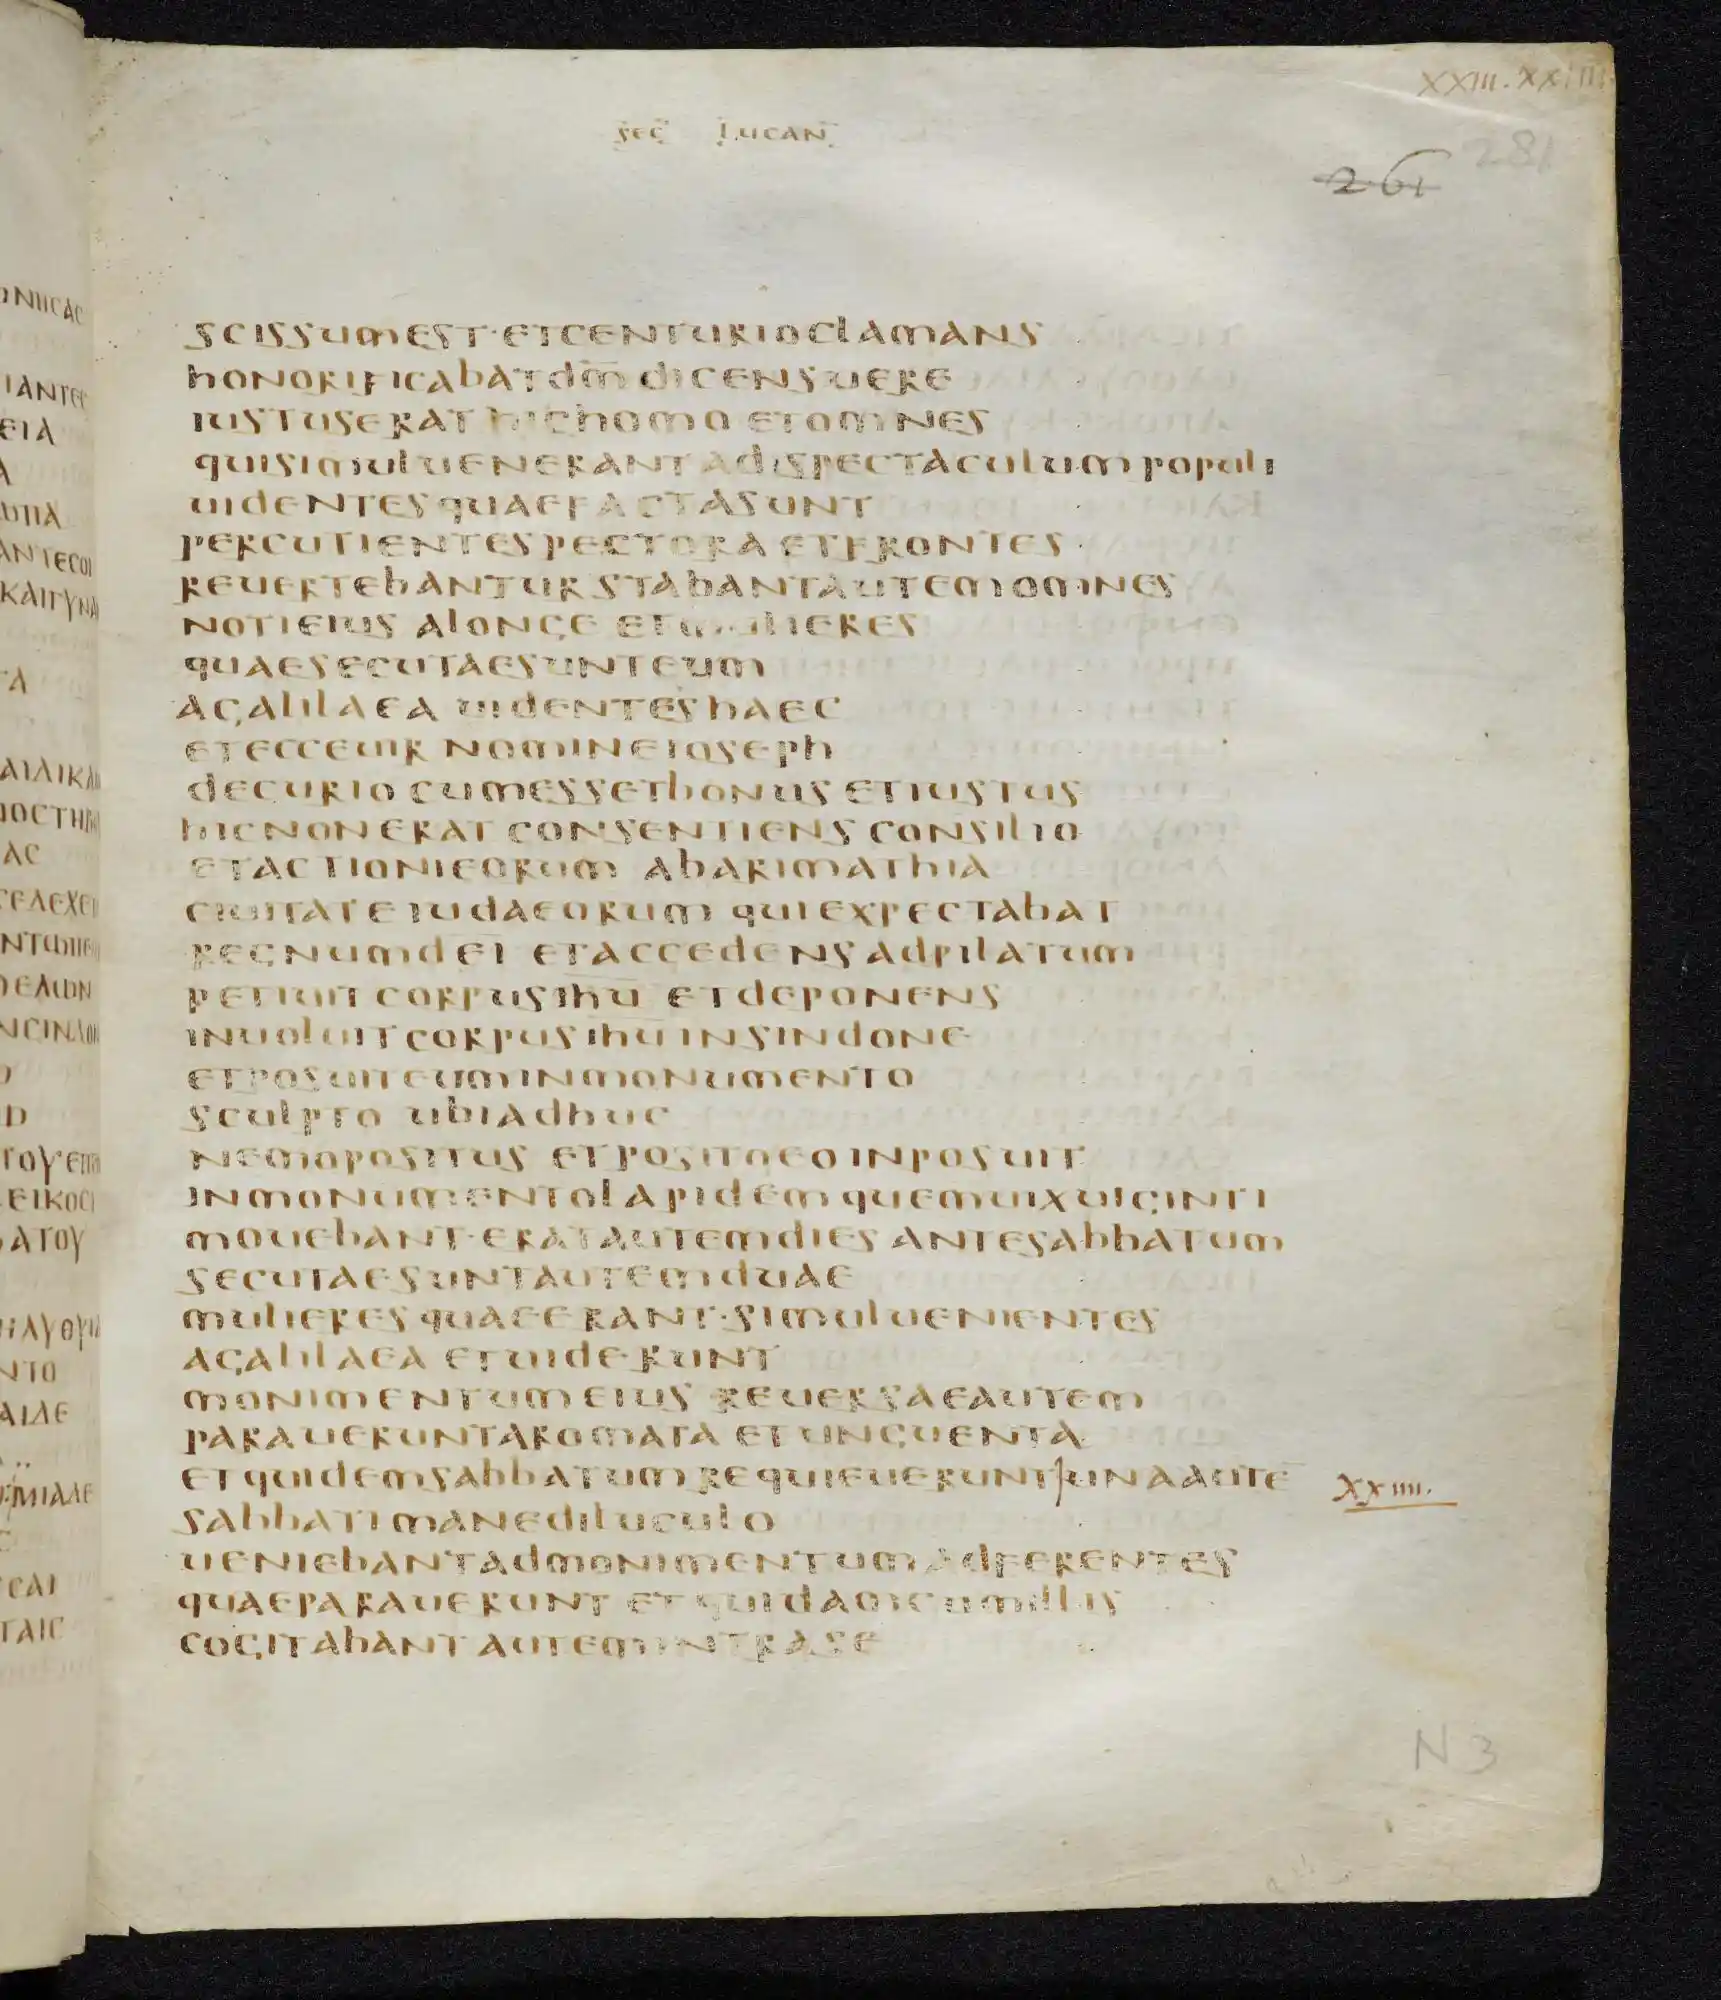 XXIII. XXIIII.
sec lucan
281
261
scissumest·etcenturioclamans
honorificabatdm̄dicensuere
iustuserat hichomo etomnes
quisimuluenerant adispectaculumpopuli
uidentesquaefactasunt
percutientespectora etfrontes
reuertebanturstabantautemomnes
notieius alonge etmulieres
quaesecutaesunteum
agalilaea uidenteshaec
etecceuir nomineioseph
decurio cumessetbonus etiustus
hicnonerat consentiens consilio
etactionieorum abarimathia
ciuitateiudaeorum quiexpectabat
regnumdei etaccedensadpilatum
petiuit corpusih̅u̅ etdeponens
inuoluitcorpusih̅u̅insindone
etposuiteuminmonumento
sculpto ubiadhuc
nemopositus etpositoeoinposuit
inmonumentolapidem quemuixuiginti
mouebant·eratautemdies antesabbatum
secutaesuntautemduae
mulieresquaeerant·simuluenientes
agalilaea etuiderunt
monimentumeius reuersaeautem
paraueruntaromata etunguenta
etquidemsabbatumrequieuerunt unaautē
XXIIII.
sabbatimanediluculo
ueniebantadmonimentumadferentes
quaeparauerunt etquidamcumillis
cogitabant autemintrase
N 3
ΚΑΙΓΥΝΑ